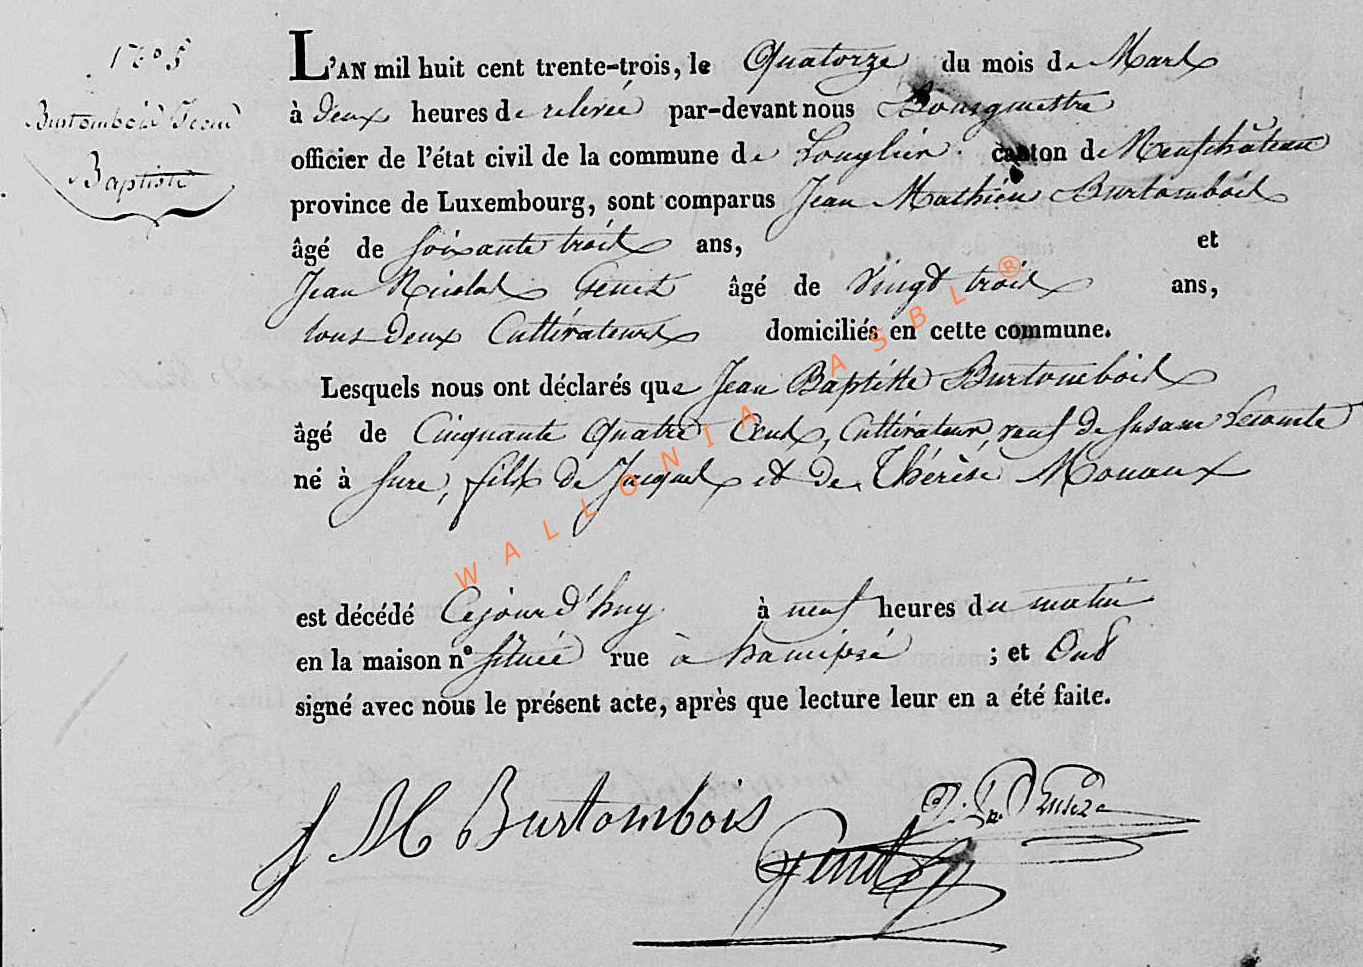 N° 5
Burtombois Jean
Baptiste
L'AN mil huit cent trente-trois, le Quatorze du mois de Mars
à deux heures de relivée par-devant nous Bourgmestre
officier de l'état civil de la commune de Longlier canton de Neufchâteau
province de Luxembourg, sont comparus Jean Mathieu Burtombois
âgé de soixante trois ans, et
Jean Nicolas Genit âgé de vingt trois ans,
tous deux Cultivateurs domiciliés en cette commune.
Lesquels nous ont déclarés que Jean Baptiste Burtombois
âgé de Cinquante Quatre Ans, Cultivateur, veuf de Susane Lecomte
né à Sure, fils de Jacques et de Thérèse Monaux
est décédé Cejourd'huy à neuf heures du matin
en la maison n° située rue à hamipré ; et Ont
signé avec nous le présent acte, après que lecture leur en a été faite.
J M Burtombois
Genit
WALLONIA ASBL ®